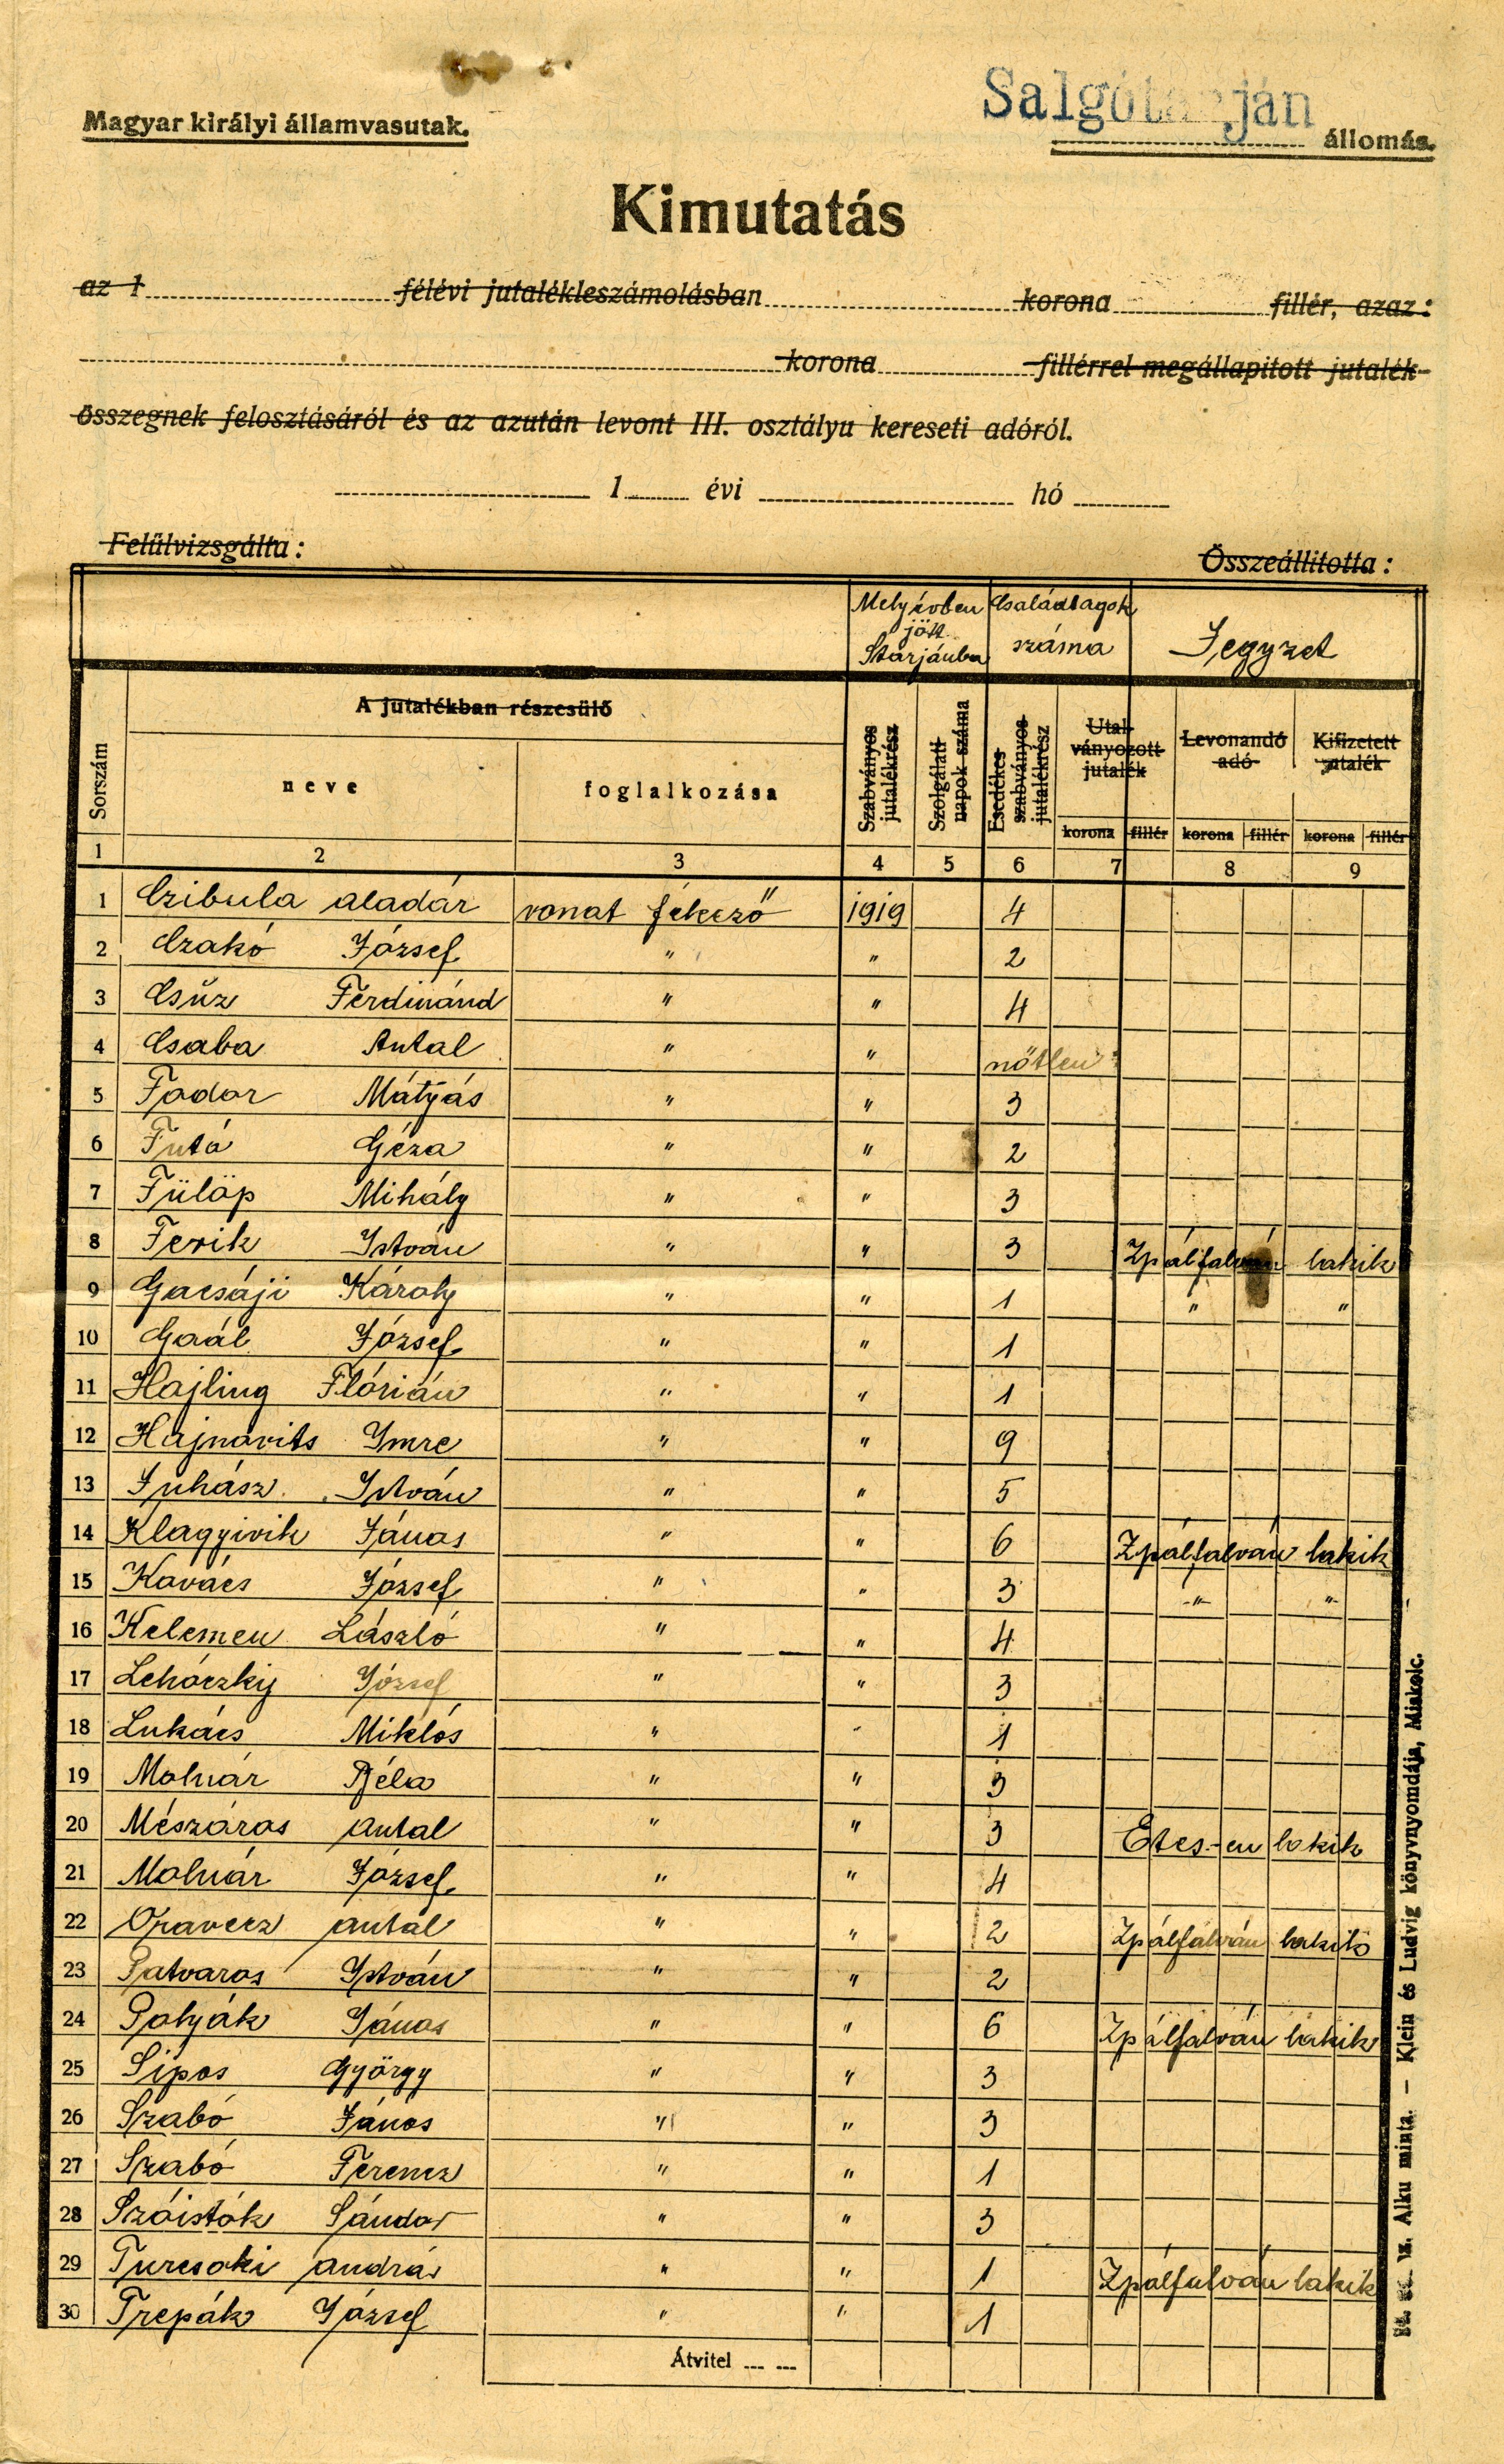 Magyar királyi államvasutak.
Salgótarján állomás.
Kimutatás
az 1 félévi jutalékleszámolásban korona fillér, azaz:
korona fillérrel megállapitott jutalék-
összegnek felosztásáról és az azután levont III. osztályu kereseti adóról.
1 évi hó
Felülvizsgálta: Összeállitotta:
Mely évben jött Starjánba Családtagok száma Jegyzet
Sorszám
A jutalékban részesülő
neve foglalkozása
Szabványos jutalékrész
Szolgálati napok száma
Esedékes szabványos jutalékrész
Utalványozott jutalék
Levonandó adó
Kifizetett jutalék
korona fillér korona fillér korona fillér
1 2 3 4 5 6 7 8 9
1 Czibula Aladár vonat fékező 1919 4
2 Czakó József " " 2
3 Csűz Ferdinánd " " 4
4 Csaba Antal " " nőtlen
5 Fodor Mátyás " " 3
6 Futó Géza " " 2
7 Fülöp Mihály " " 3
8 Ferik István " " 3 Zpálfalván lakik
9 Gacsáji Károly " " 1 " "
10 Gaál József " " 1
11 Hajling Flórián " " 1
12 Hajnovits Imre " " 9
13 Juhász István " " 5
14 Klagyivik János " " 6 Zpálfalván lakik
15 Kovács József " " 3 -"- "-
16 Kelemen László " " 4
17 Lehóczky József " " 3
18 Lukács Miklós " " 1
19 Molnár Béla " " 3
20 Mészáros Antal " " 3 Etes-en lakik
21 Molnár József " " 4
22 Oravecz Antal " " 2 Zpálfalván lakik
23 Patvaros István " " 2
24 Polyák János " " 6 Zpálfalván lakik
25 Sipos György " " 3
26 Szabó János " " 3
27 Szabó Ferencz " " 1
28 Szóistók Sándor " " 3
29 Turcsoki András " " 1 Zpálfalván lakik
30 Trepák József " " 1
Átvitel
sz. Alku minta. — Klein és Ludvig könyvnyomdája, Miskolc.